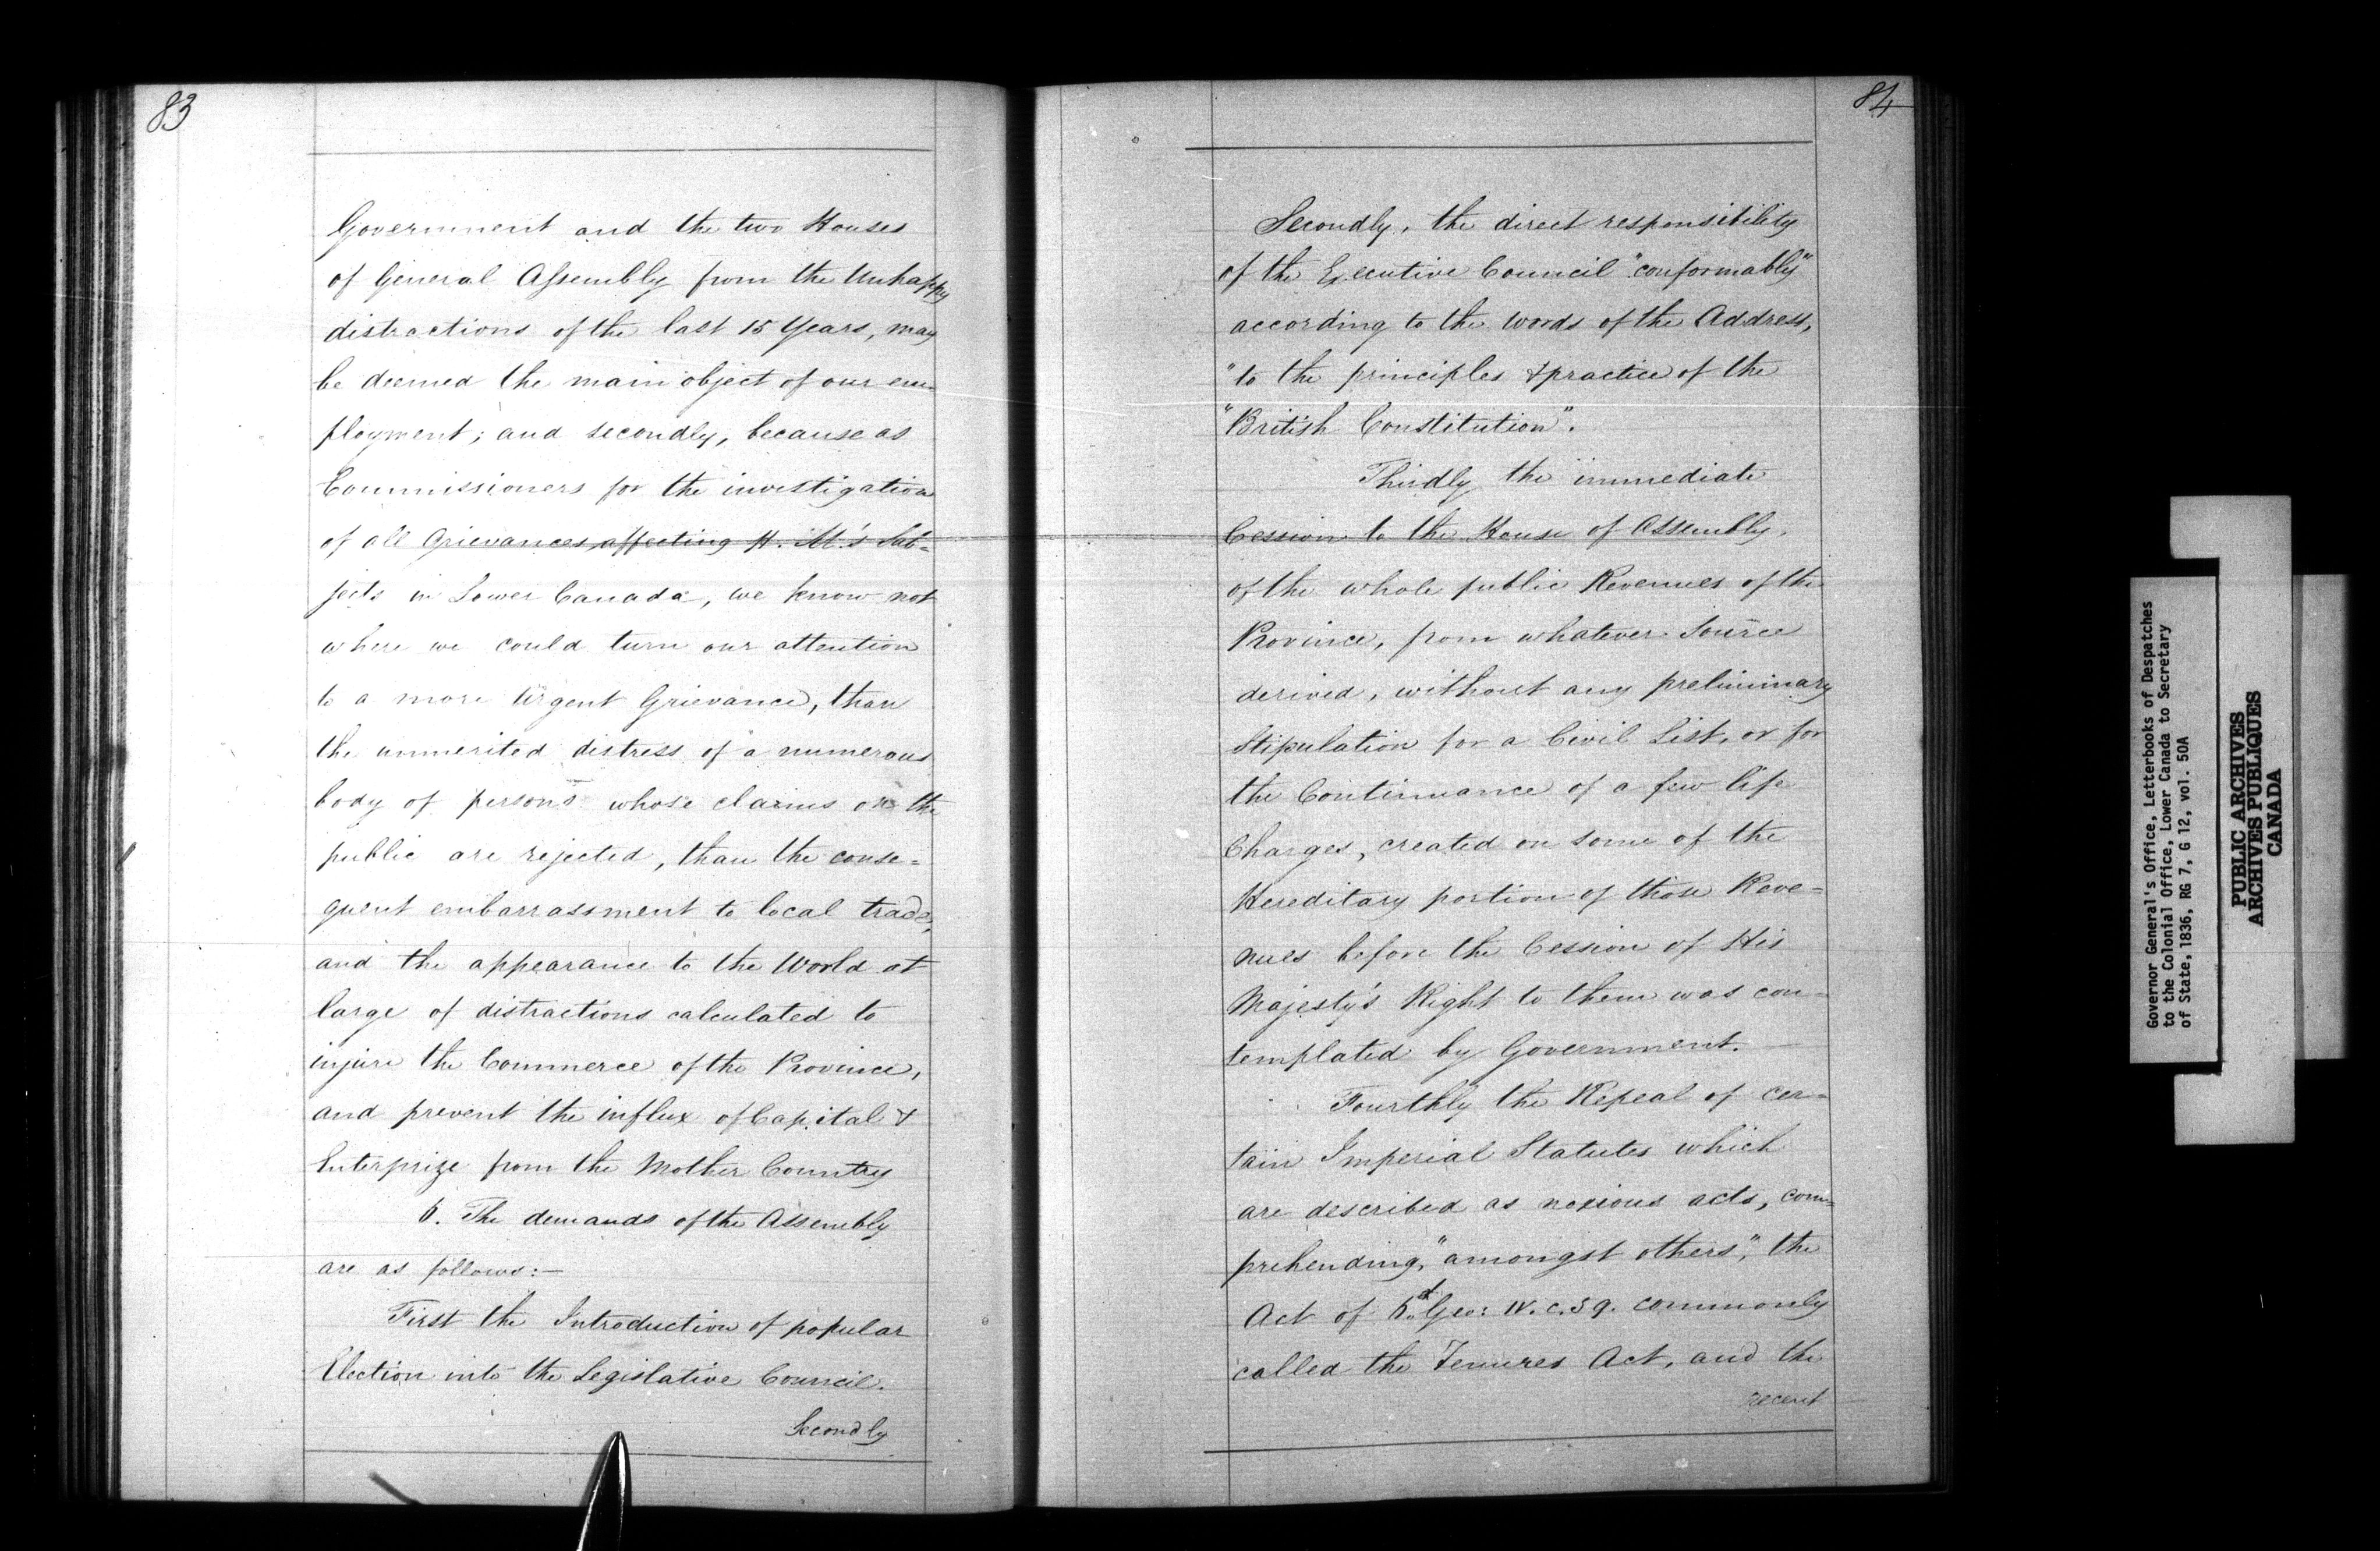 83
Government and the two Houses
of General Assembly from the Unhappy
distractions of the last 15 Years, may
be deemed the main object of our em-
ployment; and secondly, because as
Commissioners for the investigation
of all Grievances affecting H. M.'s Sub-
jects in Lower Canada, we know not
where we could turn our attention
to a more Urgent Grievance, than
the unmerited distress of a numerous
body of persons whose claims on the
public are rejected, than the conse-
quent embarrassment to local trade,
and the appearance to the World at
large of distractions calculated to
injure the Commerce of the Province,
and prevent the influx of Capital &
Enterprize from the Mother Country
6. The demands of the Assembly
are as follows:—
First the Introduction of popular
Election into the Legislative Council.
Secondly
84
Secondly, the direct responsibility
of the Executive Council "conformably"
according to the words of the Address,
"to the principles & practice of the
"British Constitution".
Thirdly the immediate
Cession to the House of Assembly,
of the whole public Revenues of the
Province, from whatever Source
derived, without any preliminary
Stipulation for a Civil List, or for
the Continuance of a few life
Charges, created on some of the
Hereditary portion of those Reve-
nues before the Cession of His
Majesty's Right to them was con-
templated by Government.
Fourthly the Repeal of cer-
tain Imperial Statutes which
are described as noxious acts, com-
prehending, "amongst others", the
Act of 6. Geo: IV. c. 59. commonly
called the Tenures Act, and the
recent
Governor General's Office, Letterbooks of Despatches
to the Colonial Office, Lower Canada to Secretary
of State, 1836, RG 7, G 12, vol. 50A
PUBLIC ARCHIVES
ARCHIVES PUBLIQUES
CANADA